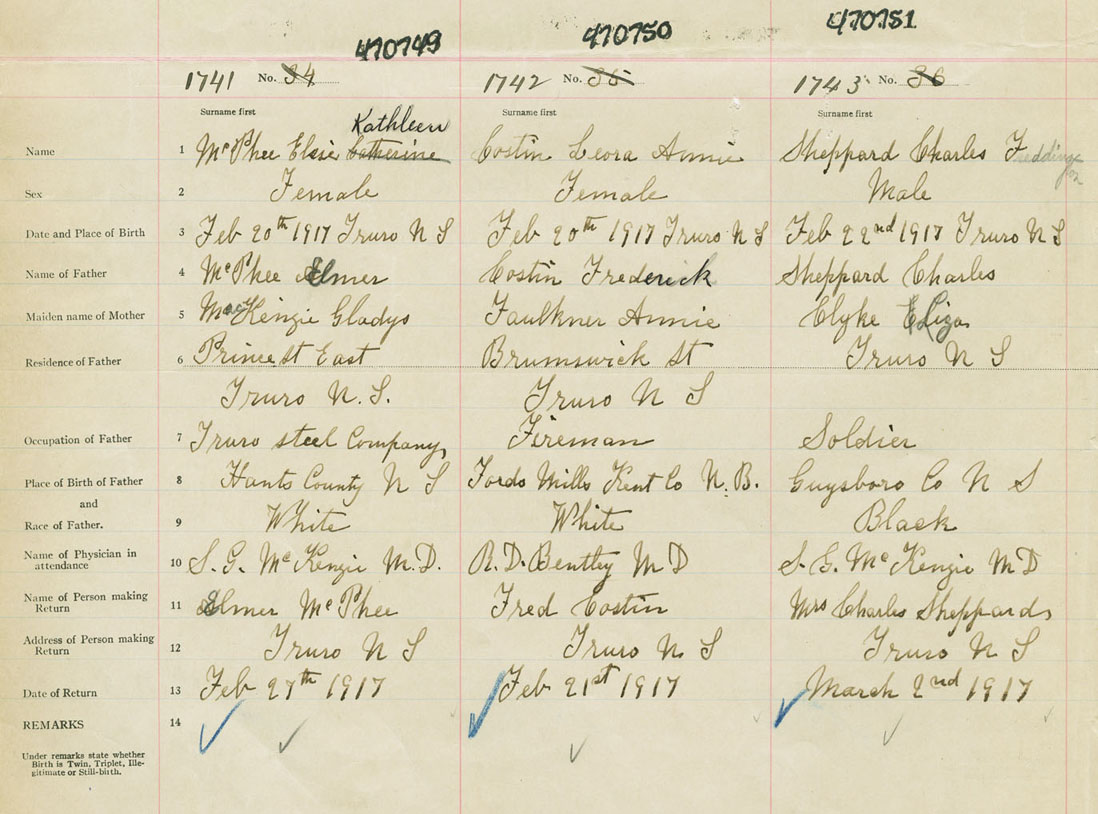 470749 470750 470751
1741 No. 34 1742 No. 35 1743 No. 36
Surname first Surname first Surname first
Kathleen
Name 1 McPhee Elsie Catherine Costin Leora Annie Sheppard Charles F
Sex 2 Female Female Male
Date and Place of Birth 3 Feb 20th 1917 Truro N S Feb 20th 1917 Truro N S Feb 22nd 1917 Truro N S
Name of Father 4 McPhee Elmer Costin Frederick Sheppard Charles
Maiden name of Mother 5 MacKenzie Gladys Faulkner Annie Clyke Eliza
Residence of Father 6 Prince St East Brumswick St Truro N S
Truro N.S. Truro N S
Occupation of Father 7 Truro steel Company, Fireman Soldier
Place of Birth of Father 8 Hants County N S Fords Mills Kent Co N.B. Guysboro Co N S
and
Race of Father. 9 White White Black
Name of Physician in
attendance 10 S. G. McKenzie M.D. R.D. Bentley M D S. G. McKenzie M D
Name of Person making
Return 11 Elmer McPhee Fred Costin Mrs Charles Sheppards
Address of Person making
Return 12 Truro N S Truro N S Truro N S
Date of Return 13 Feb 27th 1917 Feb 21st 1917 March 2nd 1917
REMARKS 14
Under remarks state whether
Birth is Twin, Triplet, Ille-
gitimate or Still-birth.